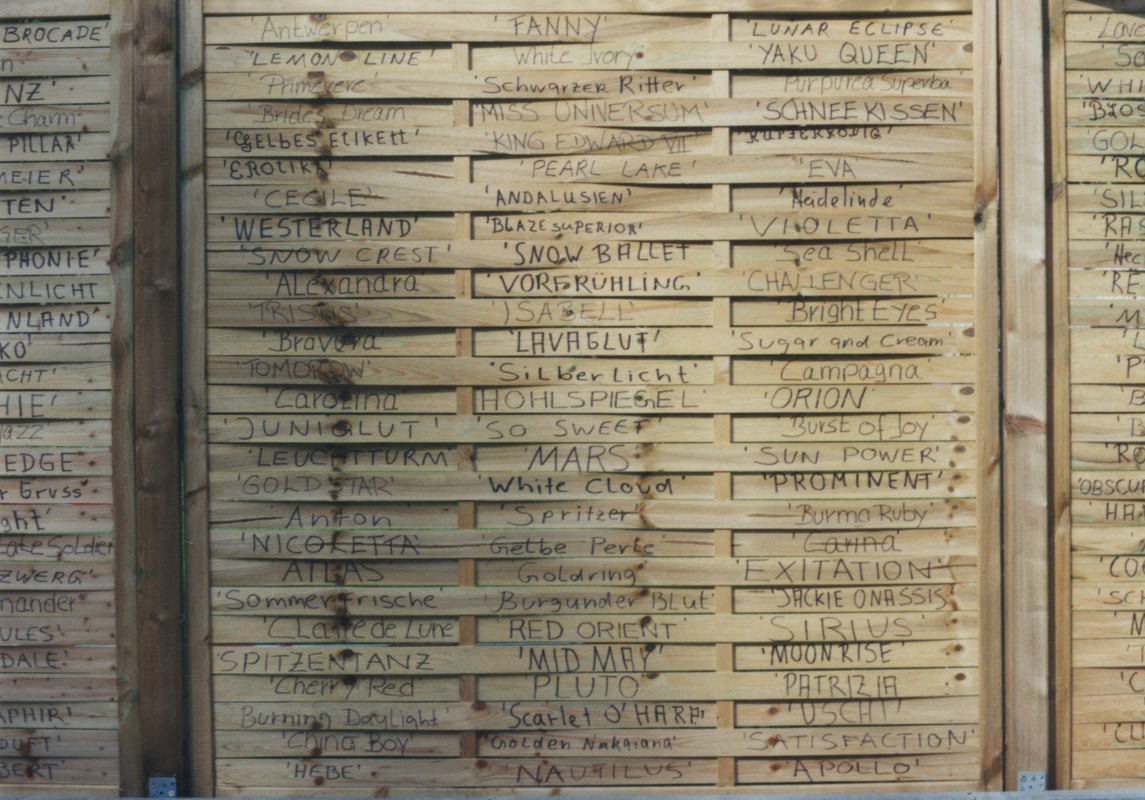 BROCADE' 'Antwerpen' 'FANNY' 'LUNAR ECLIPSE'
'LEMON LINE' 'White Ivory' 'YAKU QUEEN'
NZ' 'Primevere' 'Schwarzer Ritter' 'Purpurea Superba'
Charm' 'Brides Dream' 'MISS UNIVERSUM' 'SCHNEEKISSEN'
PILLAR' 'GELBES ETIKETT' 'KING EDWARD VII'
MEIER' 'EROTIK' 'PEARL LAKE' 'EVA'
TEN' 'CECILE' 'ANDALUSIEN' 'Heidelinde'
'WESTERLAND' 'BLAZE SUPERIOR' 'VIOLETTA'
PHONIE' 'SNOW CREST' 'SNOW BALLET' 'Sea Shell'
NLICHT 'Alexandra' 'VORFRÜHLING' 'CHALLENGER'
NLAND' 'ISABELL' 'Bright Eyes'
KO' 'Bravura' 'LAVAGLUT' 'Sugar and Cream'
ICHT' 'TOMOROW' 'SilberLicht' 'Campagna'
HIE' 'Carolina' 'HOHLSPIEGEL' 'ORION'
Jazz 'JUNIGLUT' 'SO SWEET' 'Burst of Joy'
EDGE 'LEUCHTTURM' 'MARS' 'SUN POWER'
r Gruss' 'GOLD STAR' 'White Cloud' 'PROMINENT'
ght' 'Anton' 'Spritzer' 'Burma Ruby'
'NICOLETTA' 'Gelbe Perle' 'Carina'
ZWERG' 'ATLAS' 'Goldring' 'EXITATION'
mander' 'Sommerfrische' 'Burgunder Blut' 'JACKIE ONASSIS'
ULES' 'Claire de Lune' 'RED ORIENT' 'SIRIUS'
DALE' 'SPITZENTANZ' 'MID MAY' 'MOONRISE'
'Cherry Red' 'PLUTO' 'PATRIZIA'
APHIR' 'Burning Daylight' 'Scarlet O'HARA' 'USCHI'
DUFT' 'China Boy' 'Golden Nakaiana' 'SATISFACTION'
BERT' 'HEBE' 'NAUTILUS' 'APOLLO'